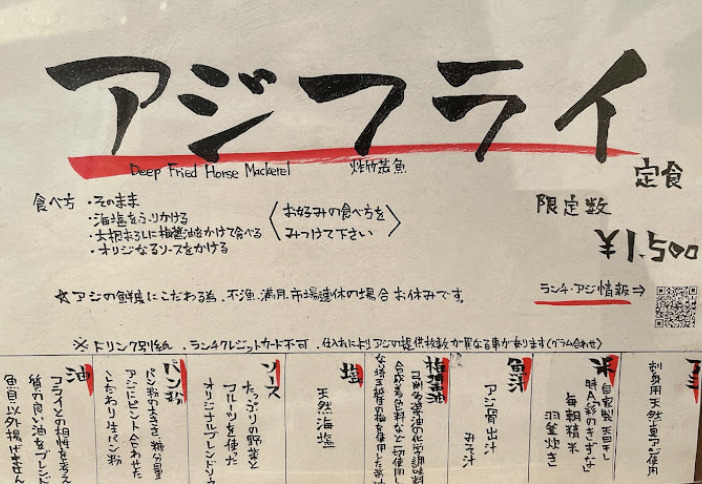 アジフライ
Deep Fried Horse Mackerel 炸竹荚魚
定食
食べ方
・そのまま
・海塩をふりかける
・大根おろしに梅醤油をかけて食べる
・オリジナルソースをかける
〈お好みの食べ方を
みつけて下さい〉
限定数
¥1,500
ランチ・アジ情報⇨
☆アジの鮮度にこだわる為、不漁、満月、市場連休の場合お休みです。
※ドリンク別紙、ランチクレジットカード不可、仕入れによりアジの提供枚数が異なる事があります(グラム合わせ)
アジ
刺身用天然真アジ使用
米
自家製天日干し
毎朝精米
羽釜炊き
魚汁
アジ骨出汁
みそ汁
梅醤油
塩
天然海塩
ソース
たっぷりの野菜と
フルーツを使った
オリジナルブレンドソ
パン粉
パン粉の大きさ、糖分量
アジにピント合わせた
こだわり生パン粉
油
フライとの相性を考え
質の良い油をブレンド
魚貝以外揚げません